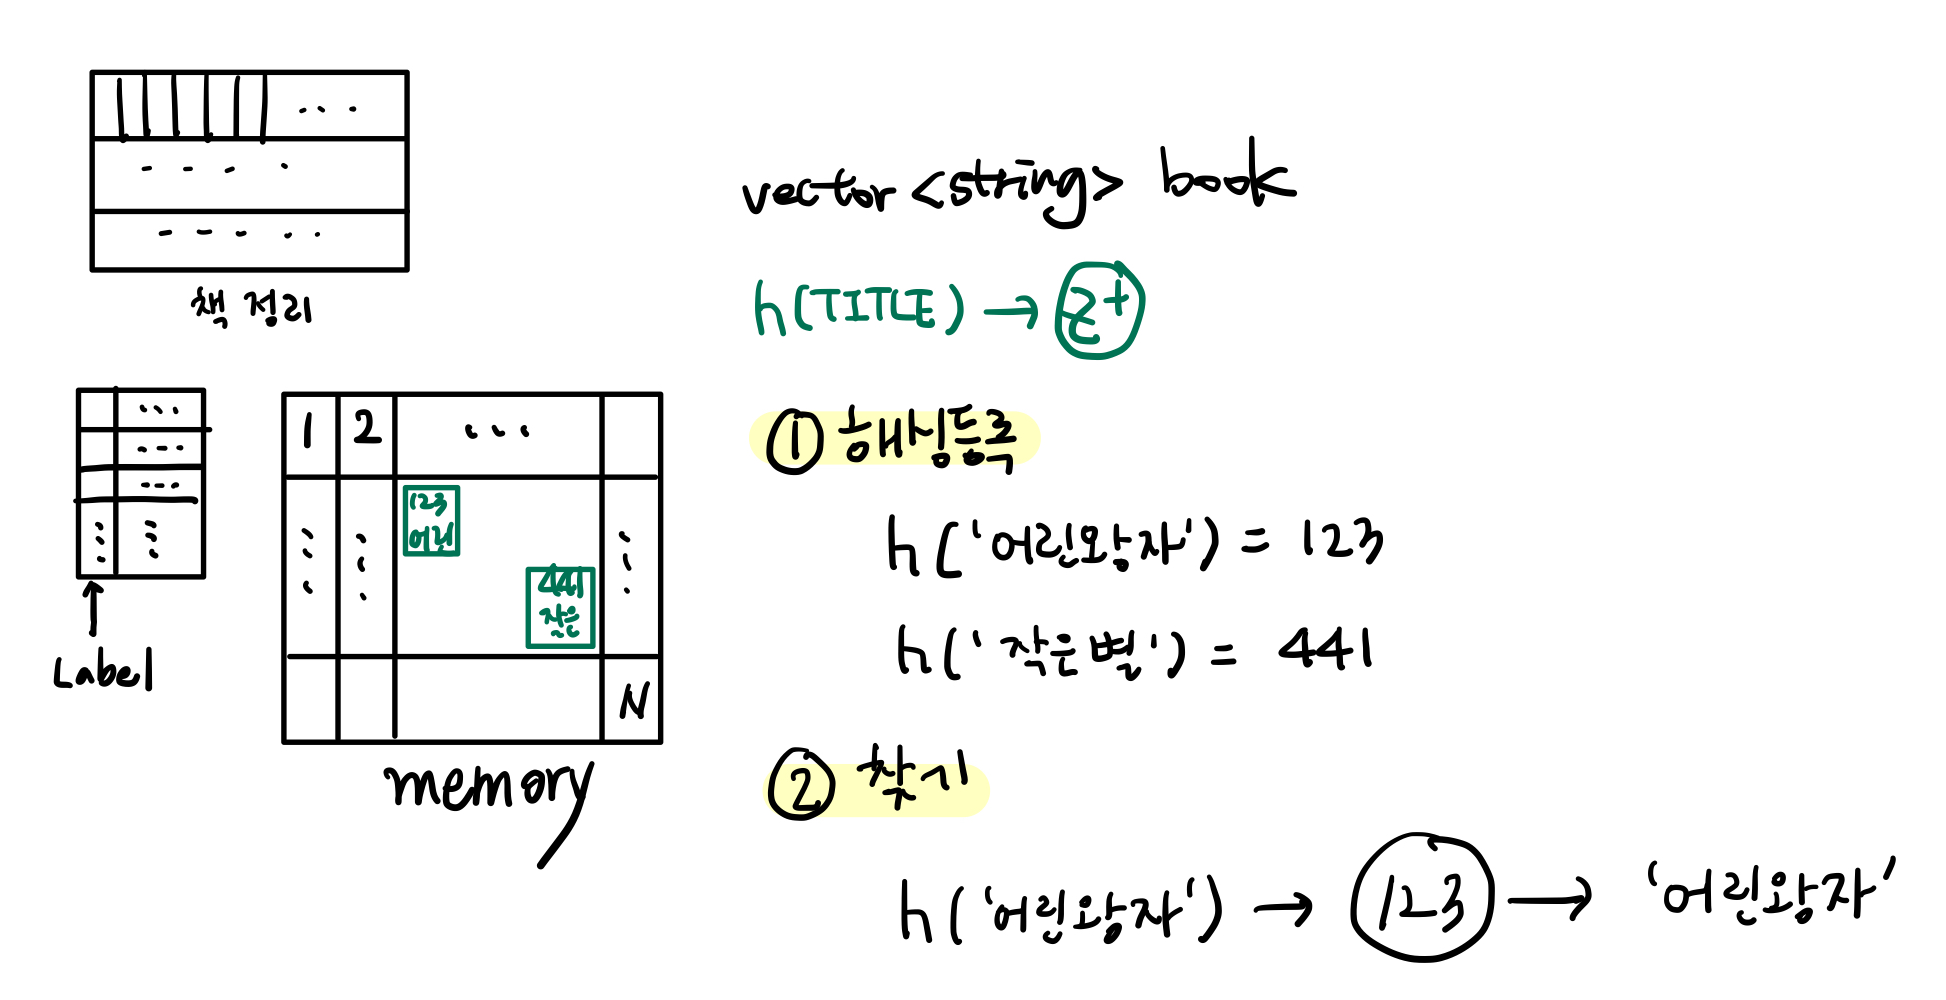 책 정리
Label
1 2 ...
123
어린
441
작은
N
memory
vector <string> book
h(TITLE) → Z+
① 해싱등록
h('어린왕자') = 123
h('작은별') = 441
② 찾기
h('어린왕자') → 123 → '어린왕자'